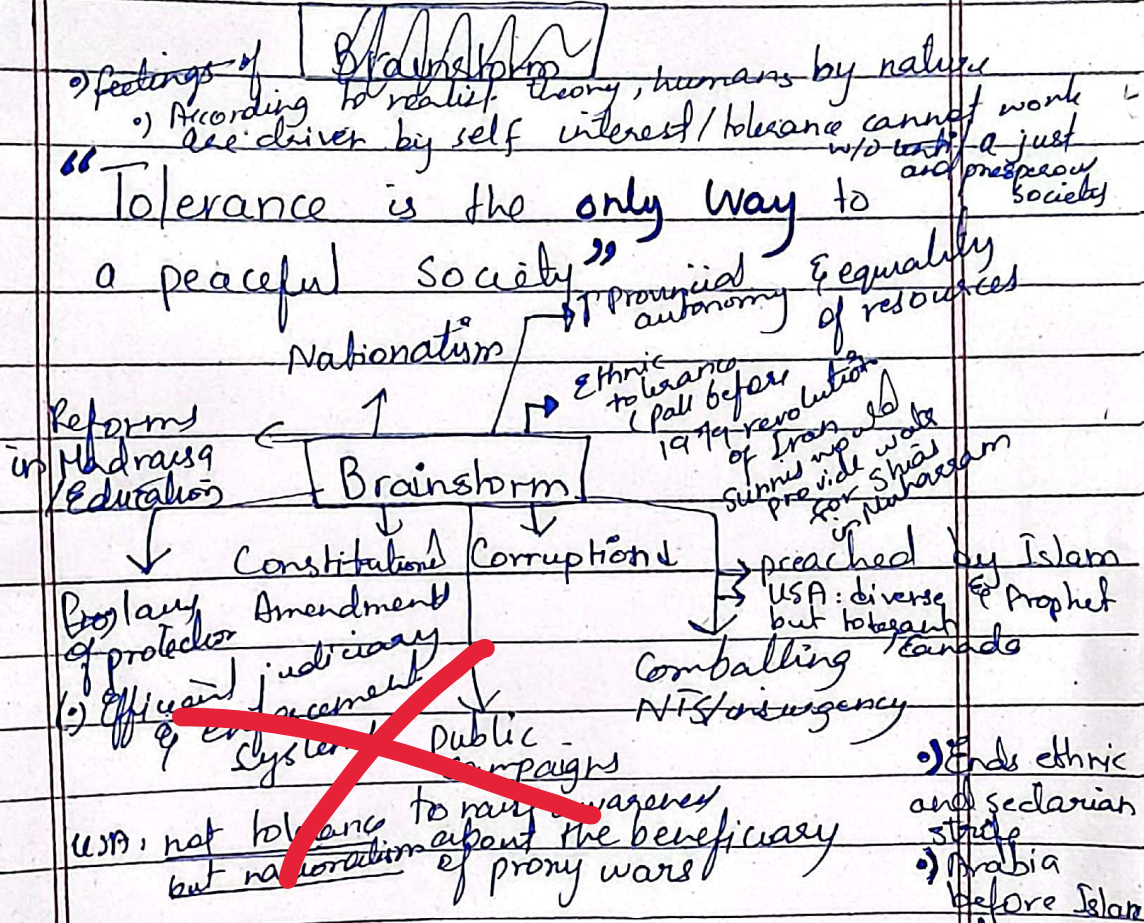 Brainstorm
•) feelings of
•) According to realist theory, humans by nature
are driven by self interest/tolerance cannot work
w/o a just
and prosperous
society
"Tolerance is the only way to
a peaceful society"
↑ Provincial
autonomy & equality
of resources
Nationatism
Ethnic
tolerance
(Pak before
1979 revolution
of Iran
sunnis would
provide water
for Shias
in Muharram
Reforms
in Madrassa
/Education
Brainstorm
Constitutional
Amendment
Corruption
preached by Islam
& Prophet
USA: diverse
but tolerant
/Canada
of protection
(•) Efficient judiciary
& enforcement
system
Combatting
NTS/insurgency
Public
campaigns
to raise awareness
about the beneficiary
of proxy wars
USA: not tolerance
but nationalism
•) Ends ethnic
and sectarian
strife
•) Arabia
before Islam